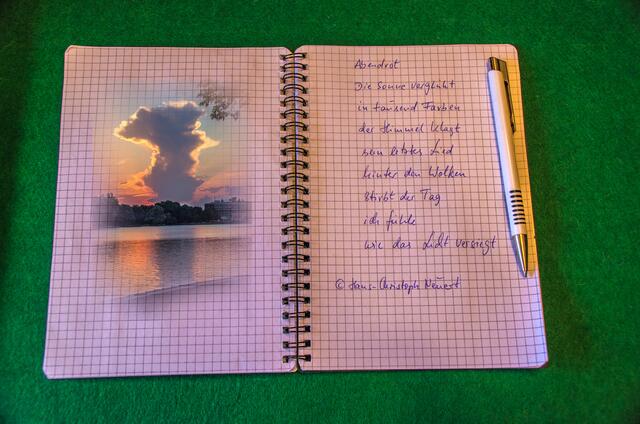 Abendrot
Die Sonne verglüht
in tausend Farben
der Himmel klagt
sein letztes Lied
hinter den Wolken
stirbt der Tag
ich fühle
wie das Licht versiegt
© Hans-Christoph Neuert